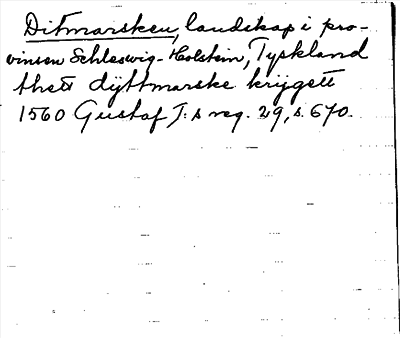 Ditmarsken, landskap i pro-
vinsen Schleswig-Holstein, Tyskland
thett dyttmarske krijgett
1560 Gustaf I:s reg. 29, s. 670.